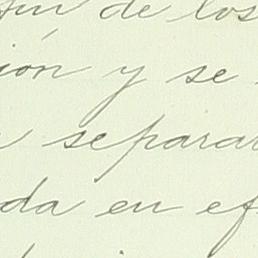 fin de los
ión y se
separar
da en ef